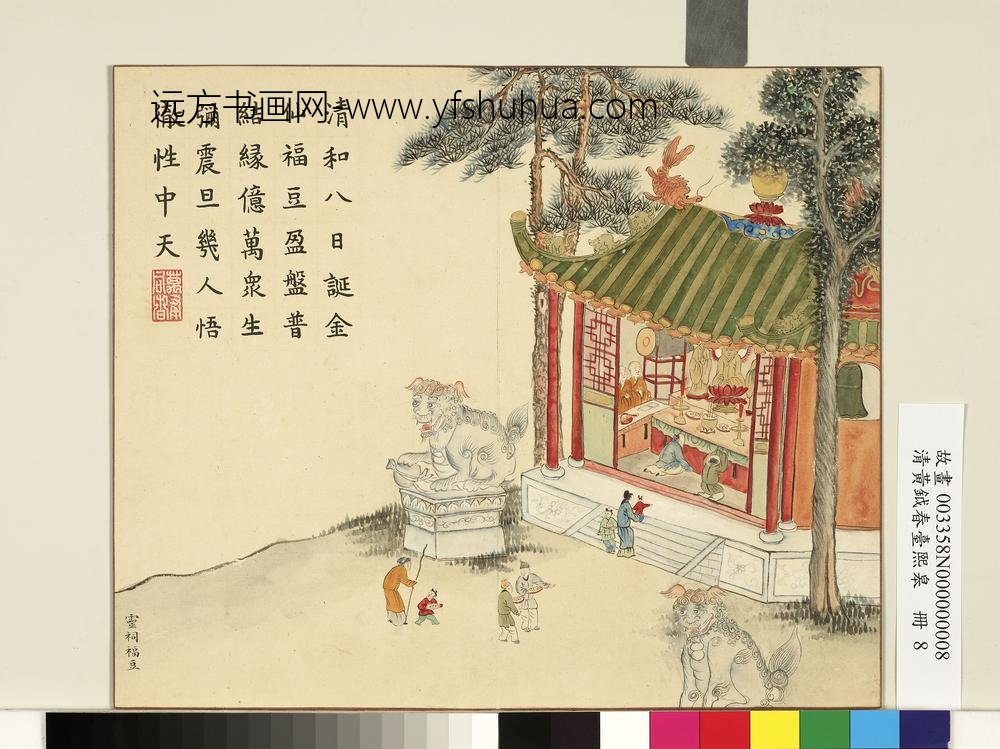 远方书画网 www.yfshuhua.com
清和八日誕金
仙福豆盈盤普
結緣億萬眾生
彌震旦幾人悟
徹性中天
靈祠福豆
故畫 003358N000000008
清黃鉞春臺熙皋 冊 8